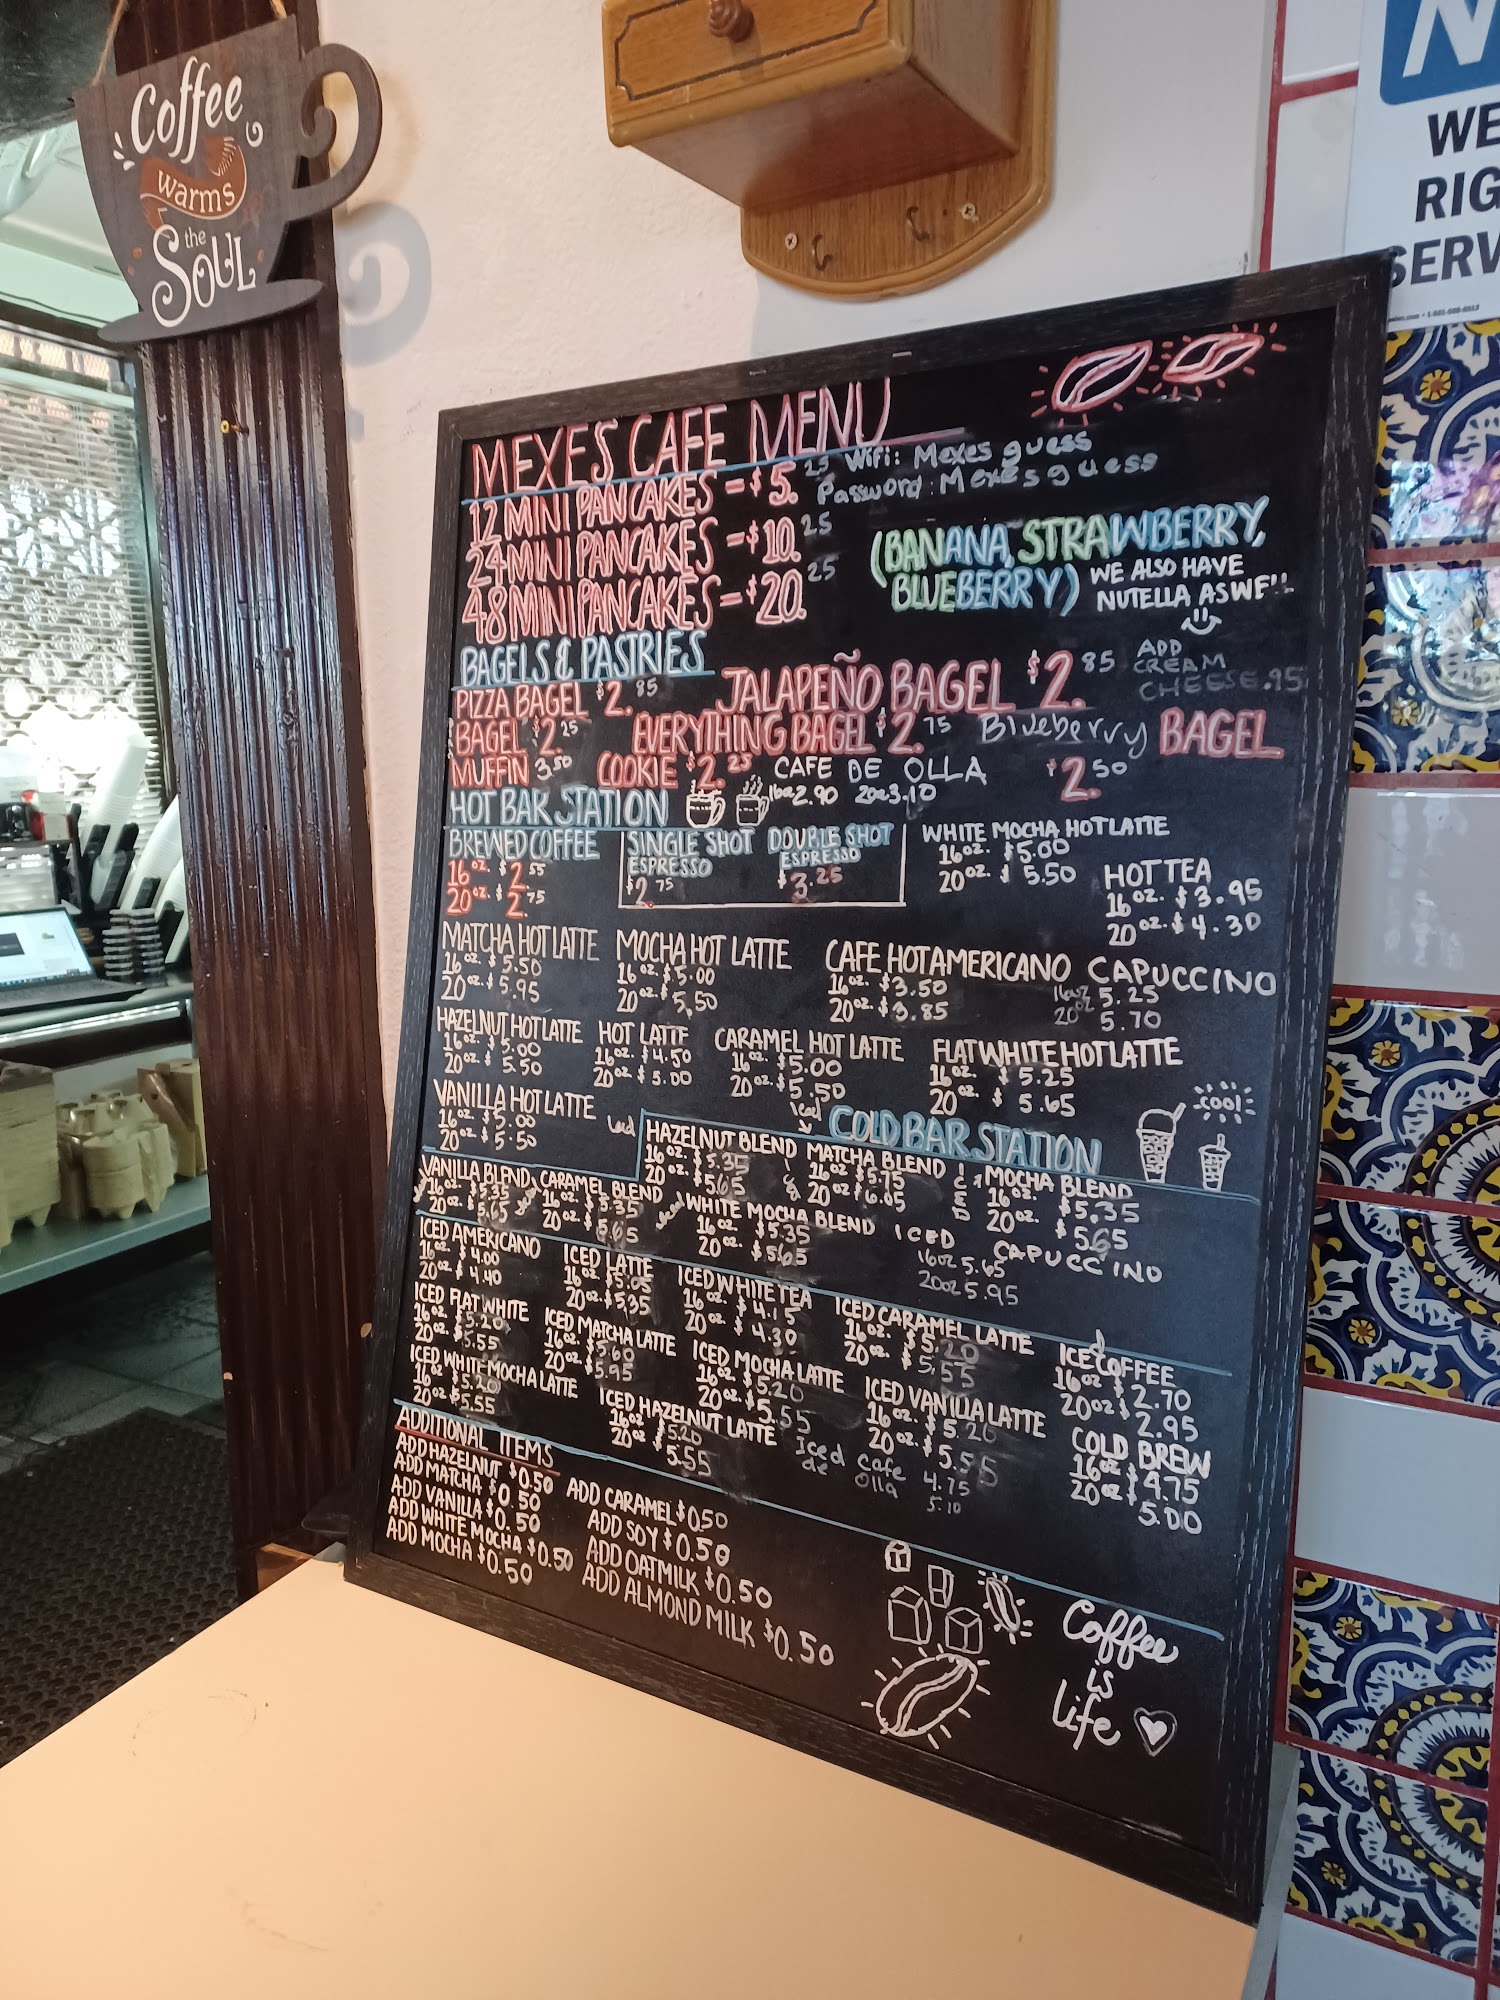 Coffee
warms
the
SOUL
N
WE
RIG
SERV
MEXES CAFE MENU
Wifi: Mexes guess
Password: Mexes guess
12 MINI PANCAKES = $5.25
24 MINI PANCAKES = $10.25
48 MINI PANCAKES = $20.25
(BANANA, STRAWBERRY,
BLUEBERRY)
WE ALSO HAVE
NUTELLA AS WELL
BAGELS & PASTRIES
PIZZA BAGEL $2.85
JALAPEÑO BAGEL $2.85
ADD
CREAM
CHEESE .95
BAGEL $2.25
EVERYTHING BAGEL $2.75
Blueberry BAGEL
$2.50
MUFFIN 3.50
COOKIE $2.25
CAFE DE OLLA
16oz 2.90 20oz 3.10
HOT BAR STATION
BREWED COFFEE
16oz. $2.55
20oz. $2.75
SINGLE SHOT
ESPRESSO
$2.75
DOUBLE SHOT
ESPRESSO
$3.25
WHITE MOCHA HOT LATTE
16oz. $5.00
20oz. $5.50
HOT TEA
16oz. $3.95
20oz. $4.30
MATCHA HOT LATTE
16oz. $5.50
20oz. $5.95
MOCHA HOT LATTE
16oz. $5.00
20oz. $5.50
CAFE HOT AMERICANO
16oz. $3.50
20oz. $3.85
CAPUCCINO
16oz 5.25
20oz 5.70
HAZELNUT HOT LATTE
16oz. $5.00
20oz. $5.50
HOT LATTE
16oz. $4.50
20oz. $5.00
CARAMEL HOT LATTE
16oz. $5.00
20oz. $5.50
FLAT WHITE HOT LATTE
16oz. $5.25
20oz. $5.65
VANILLA HOT LATTE
16oz. $5.00
20oz. $5.50
Iced
COLD BAR STATION
COOL
HAZELNUT BLEND
16oz. $5.35
20oz. $5.65
MATCHA BLEND
16oz. $5.75
20oz $6.05
ICED
MOCHA BLEND
16oz. $5.35
20oz. $5.65
VANILLA BLEND
16oz. $5.35
20oz. $5.65
CARAMEL BLEND
16oz. $5.35
20oz. $5.65
WHITE MOCHA BLEND
16oz. $5.35
20oz. $5.65
ICED CAPUCCINO
16oz 5.65
20oz 5.95
ICED AMERICANO
16oz. $4.00
20oz. $4.40
ICED LATTE
16oz. $5.05
20oz. $5.35
ICED WHITE TEA
16oz. $4.15
20oz. $4.30
ICED CARAMEL LATTE
16oz. $5.20
20oz. $5.55
ICED COFFEE
16oz. $2.70
20oz $2.95
ICED FLAT WHITE
16oz. $5.20
20oz. $5.55
ICED MATCHA LATTE
16oz. $5.60
20oz. $5.95
ICED MOCHA LATTE
16oz. $5.20
20oz. $5.55
ICED VANILLA LATTE
16oz. $5.20
20oz. $5.55
COLD BREW
16oz $4.75
20oz $5.00
ICED WHITE MOCHA LATTE
16oz $5.20
20oz $5.55
ICED HAZELNUT LATTE
16oz. $5.20
20oz $5.55
Iced cafe 4.75
de olla 5.10
ADDITIONAL ITEMS
ADD HAZELNUT $0.50
ADD MATCHA $0.50
ADD VANILLA $0.50
ADD WHITE MOCHA $0.50
ADD MOCHA $0.50
ADD CARAMEL $0.50
ADD SOY $0.50
ADD OATMILK $0.50
ADD ALMOND MILK $0.50
Coffee
is
life